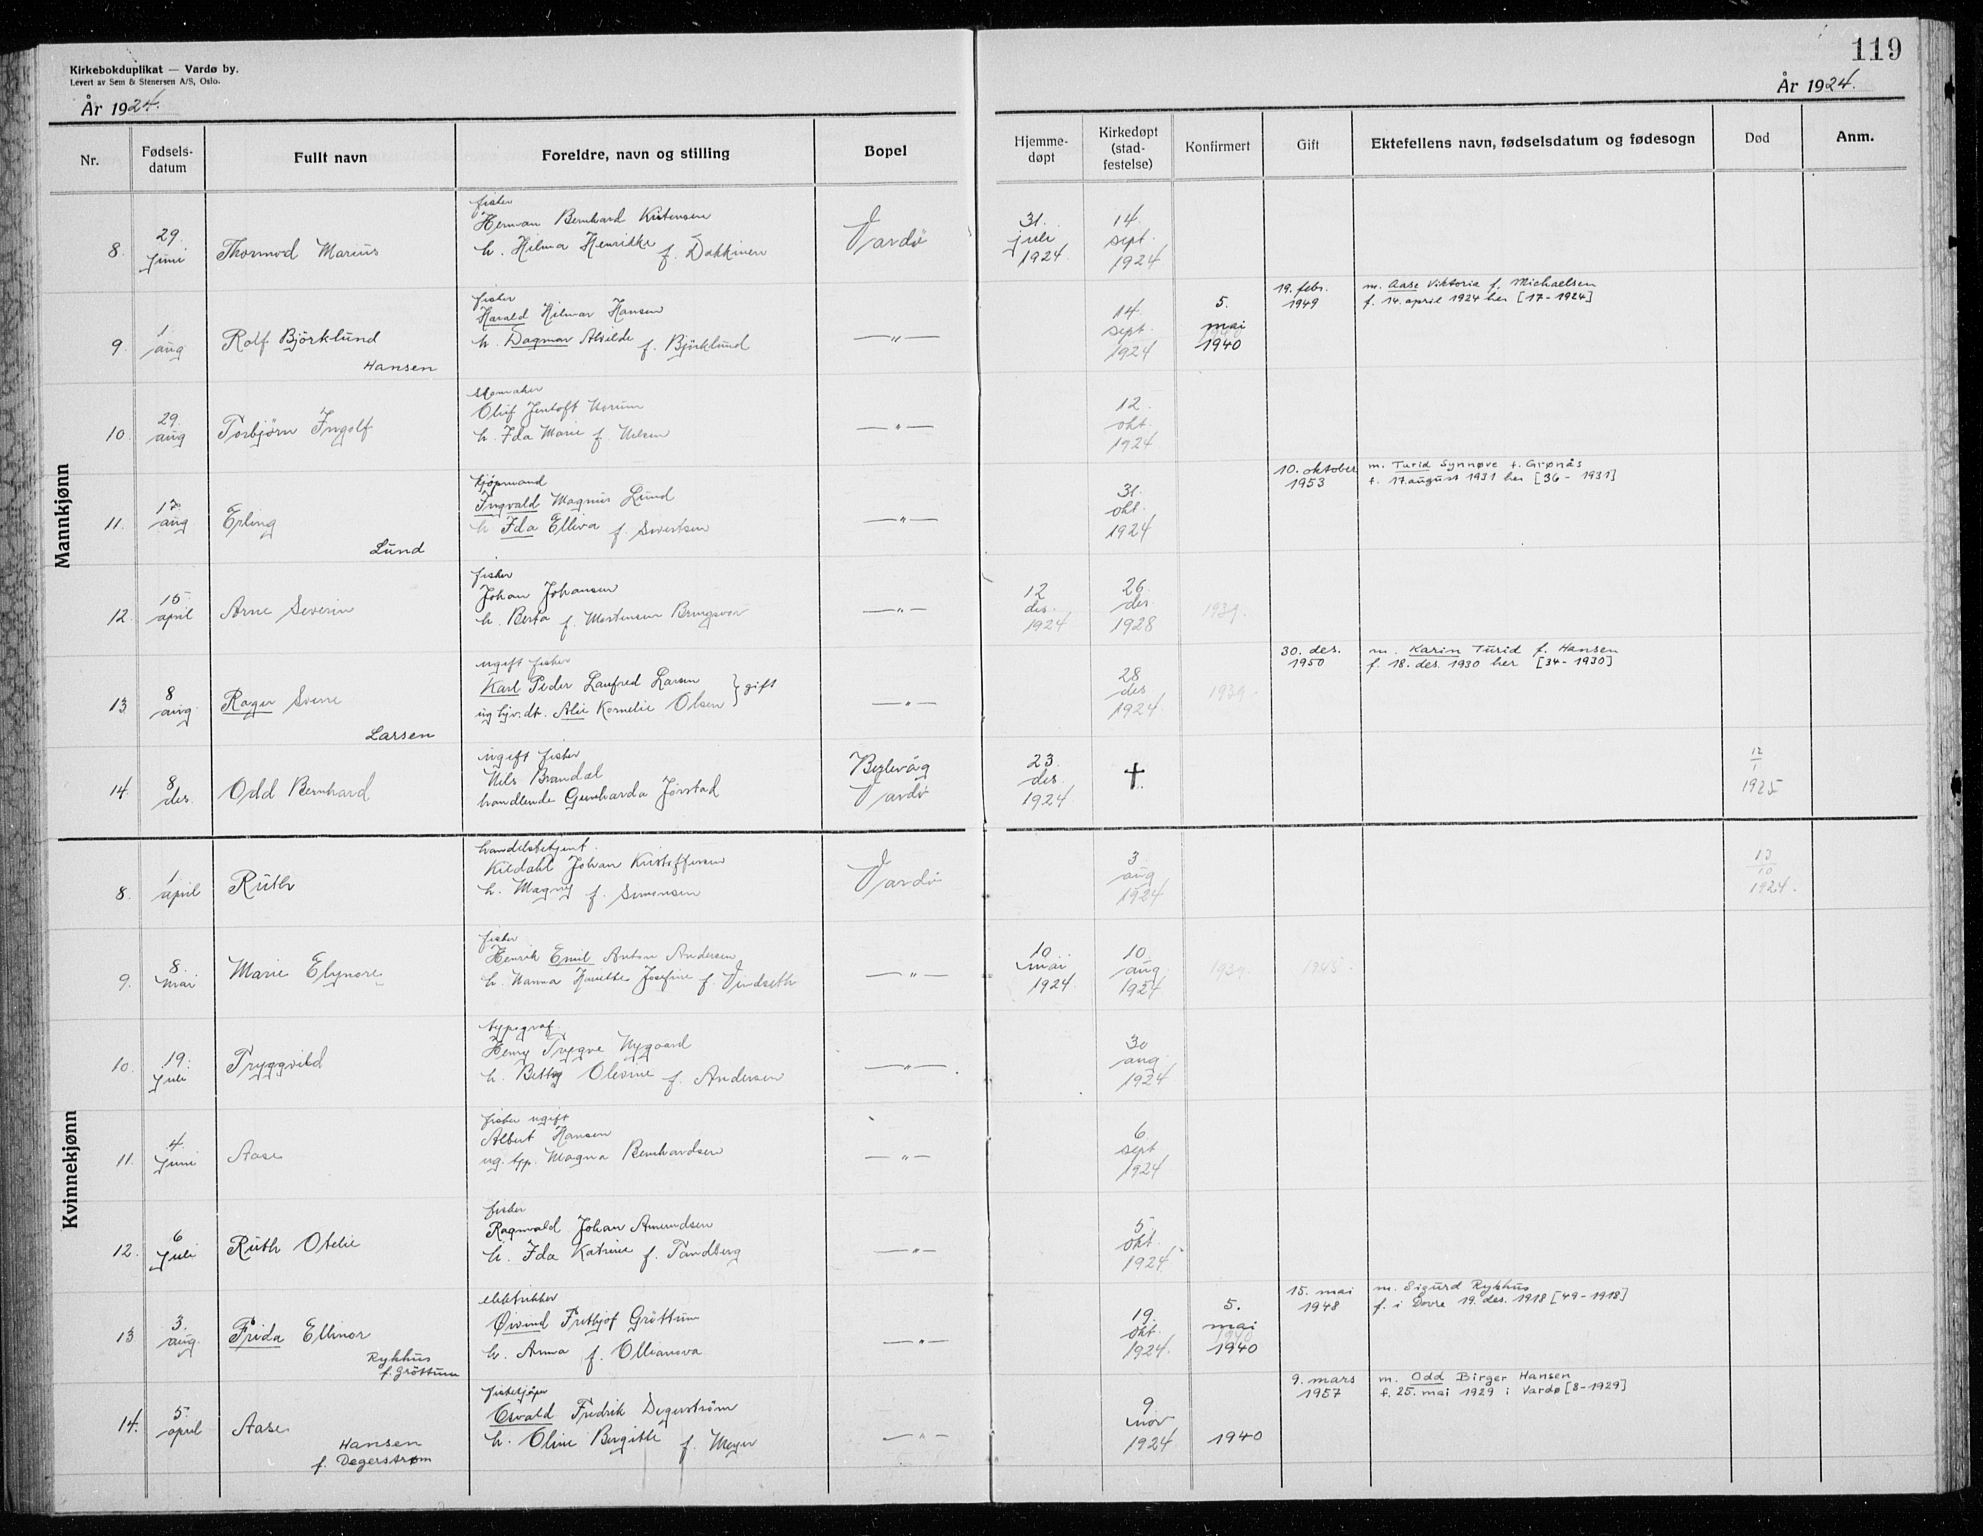 Kirkebokduplikat — Vardø by.
Levert av Sem & Stenersen A/S, Oslo.
År 1924.
119
År 1924.
Nr. Fødsels-datum Fullt navn Foreldre, navn og stilling Bopel Hjemme-døpt Kirkedøpt (stad-festelse) Konfirmert Gift Ektefellens navn, fødselsdatum og fødesogn Død Anm.
Mannkjønn
fisker
8. 29. juni Thormod Marius Herman Bernhard Kristensen Vardø 31. juli 1924. 14. sept. 1924
h. Hilma Henrikke f. Dakkinen
fisker
9. 1 aug Rolf Björklund Harald Hilmar Hansen —"— 14. sept. 1924 5. mai 1940 19. febr. 1949 m. Aase Viktoria f. Michaelsen
h. Dagmar Alvilde f. Björklund f. 14. april 1924 her [17-1924]
Hansen
10. 29. aug Torbjørn Ingolf Oluf Jentoft Norum —"— 12. okt. 1924
h. Ida Marie f. Nilsen
kjøpmand
11. 17. aug Erling Ingvald Magnus Lund —"— 31. okt. 1924 10. oktober 1953 m. Turid Synnøve f. Grønås
h. Ida Elliva f. Sivertsen f. 17. august 1931 her [36-1931]
Lund
fisker
12. 15. april Arne Severin Johan Johansen —"— 12 des. 1924 26. des. 1928 1939.
h. Berta f. Mortensen
ugift fisker
13. 8 aug. Roger Sverre Karl Peder Lanfred Larsen } gift —"— 28 des 1924. 1939. 30. des. 1950 m. Karin Turid f. Hansen
ug. tjv. dt. Alie Kornelie Olsen f. 18. des. 1930 her [34-1930]
Larsen
ugift fisker
14. 8 des. Odd Bernhard Nils Brandal Berlevåg 23. des. 1924 † 12/1 1925
handlende Gunharda Jørstad Vardø
Kvinnekjønn
handelsbetjent.
8. 1 april Ruth Kildahl Johan Kristoffersen Vardø 3 aug 1924 13/10 1924.
h. Magny f. Simonsen
fisker
9. 8. mai Marie Elynore Henrik Emil Anton Andersen —"— 10. mai 1924. 10. aug. 1924 1939. 1945.
h. Nanna Josefine f. Vindseth
typograf
10. 19. juli Tryggvild Henry Trygve Nygaard —"— 30 aug 1924
h. Betty Olesine f. Andersen
fisker ugift
11. 4. juni Aase Albert Hansen —"— 6. sept 1924
ug. tjp. Magna Bernhardsen
fisker
12. 6 juli Ruth Otelie Ragnvald Johan Amundsen —"— 5. okt. 1924
h. Ida Katrine f. Tandberg
elektrikker
13 3. aug. Frida Ellinor Øivind Fritjof Gröttum —"— 19. okt. 1924. 5. mai 1940 15. mai 1948 m. Sigurd Rykhus
h. Anna f. Ollianova f. i Dovre 19. des. 1918 [49-1918]
Rykhus
f. Gröttum
fiskekjøper
14. 5. april Aase Osvald Fredrik Degerström —"— 9. nov 1924 1940 9. mars 1957 m. Odd Birger Hansen
h. Oline Bergitte f. Meyer f. 25. mai 1929 i Vardø [8-1929]
Hansen
f. Degerstrøm